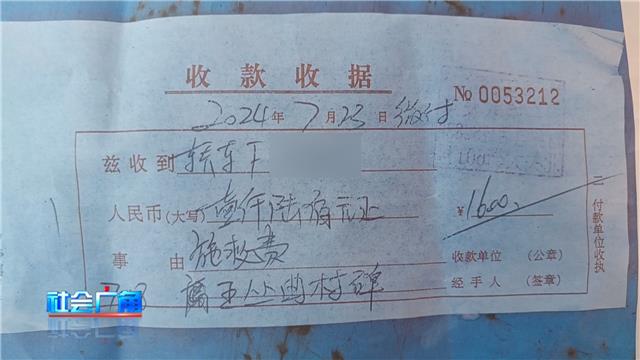 收款收据
2024年7月23日 微付 № 0053212
兹收到 轿车
人民币(大写) 壹仟陆佰元正 ¥1600
事由 施救费 收款单位 (公章)
经手人 (签章)
二 付款单位收执
社会广角